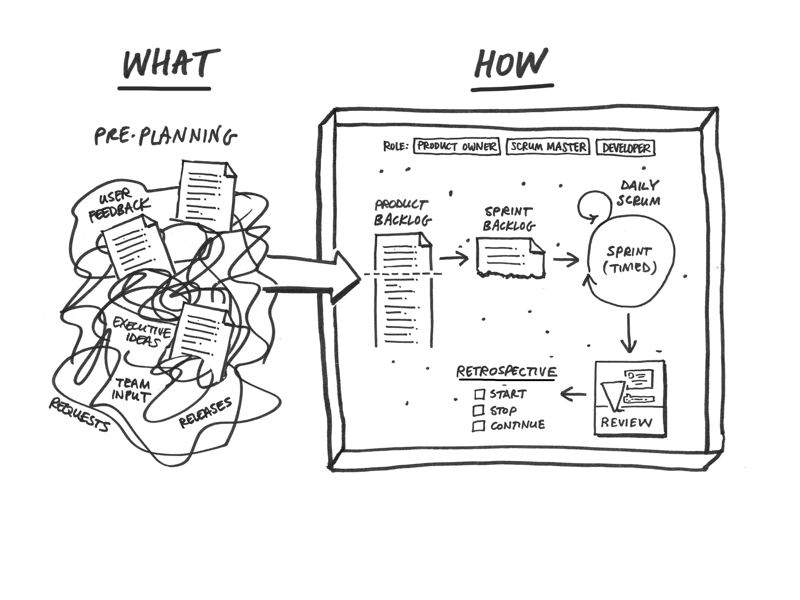 WHAT
HOW
PRE-PLANNING
USER
FEEDBACK
EXECUTIVE
IDEAS
TEAM
INPUT
REQUESTS
RELEASES
ROLE: PRODUCT OWNER SCRUM MASTER DEVELOPER
PRODUCT
BACKLOG
SPRINT
BACKLOG
DAILY
SCRUM
SPRINT
(TIMED)
REVIEW
RETROSPECTIVE
START
STOP
CONTINUE